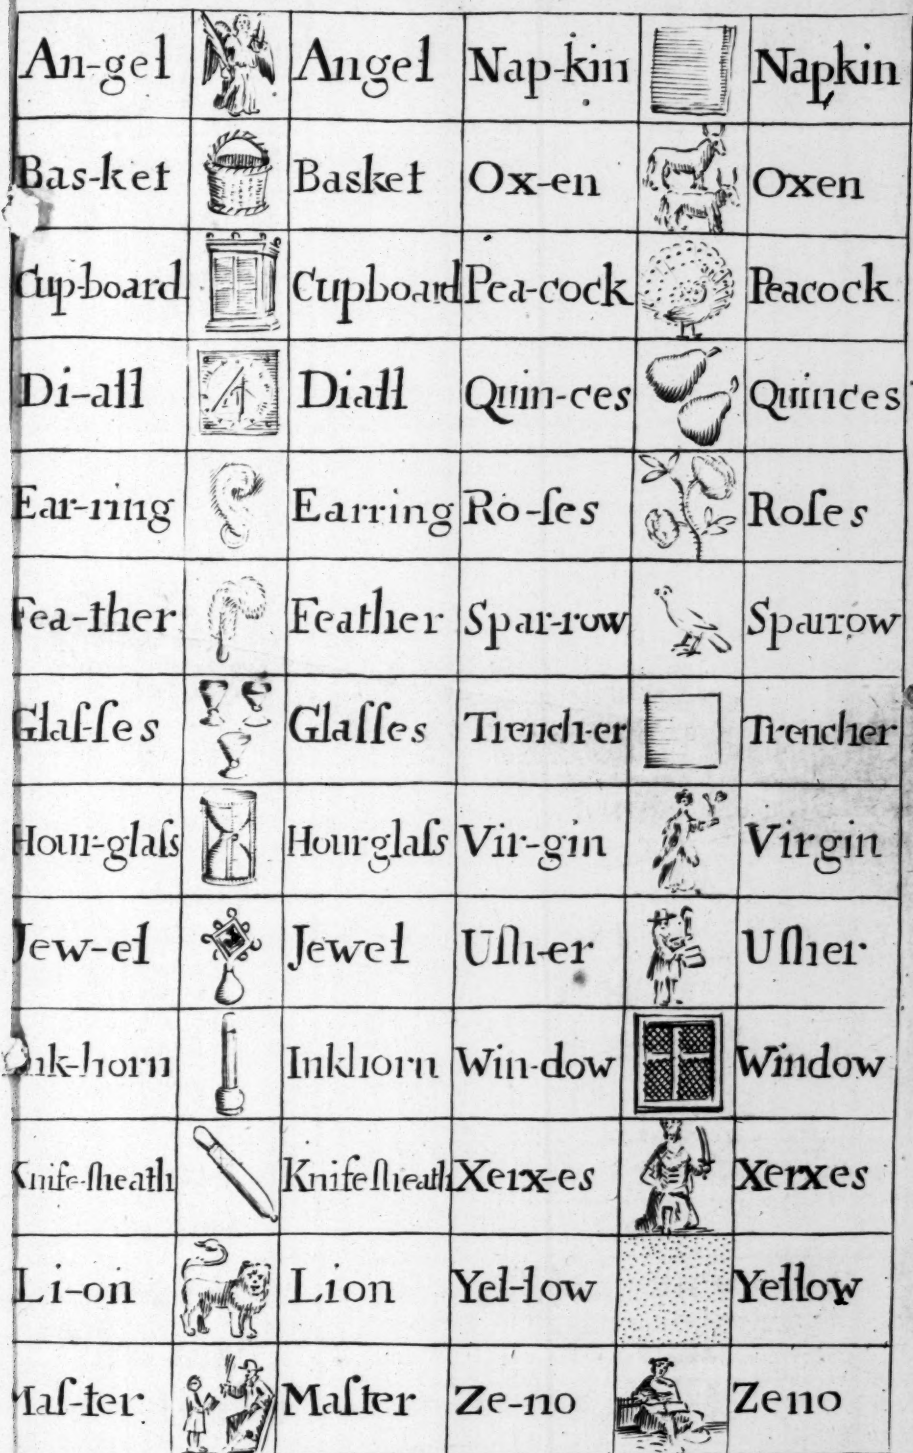 An-gel Angel Nap-kin Napkin
Bas-ket Basket Ox-en Oxen
Cup-board Cupboard Pea-cock Peacock
Di-all Diall Quin-ces Quinces
Ear-ring Earring Ro-ſes Roſes
Fea-ther Feather Spar-row Sparrow
Glaſ-ſes Glaſſes Trench-er Trencher
Hour-glaſs Hourglaſs Vir-gin Virgin
Jew-el Jewel Uſh-er Uſher
Ink-horn Inkhorn Win-dow Window
Knife-ſheath Knifeſheath Xerx-es Xerxes
Li-on Lion Yel-low Yellow
Maſ-ter Maſter Ze-no Zeno